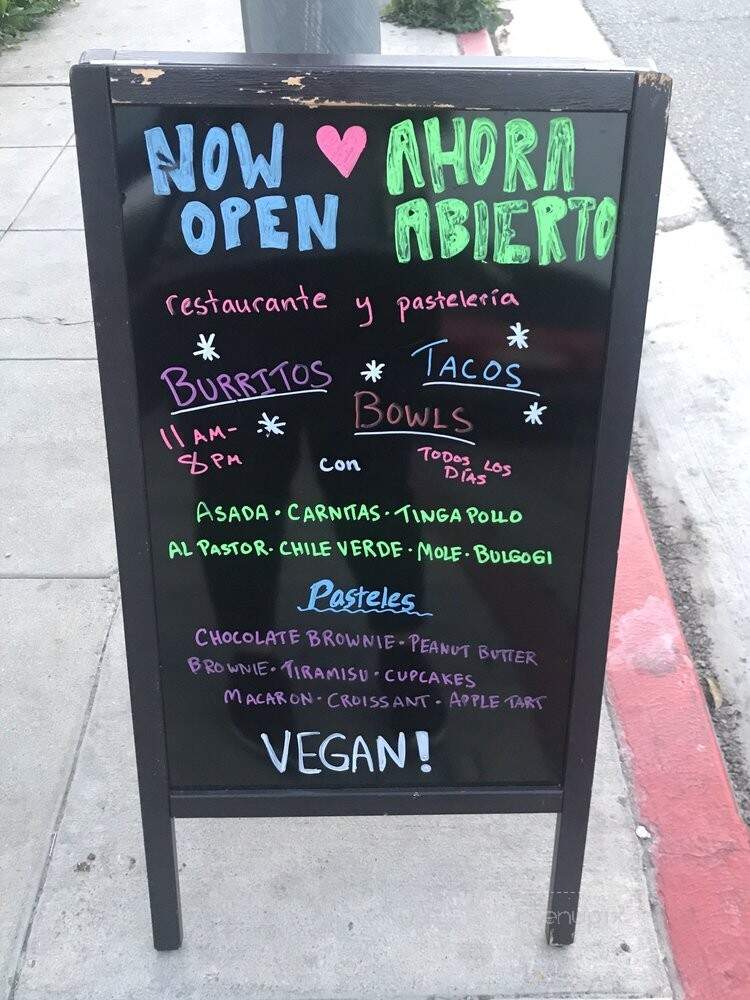 NOW ♥ AHORA
OPEN ABIERTO
restaurante y pastelería
* BURRITOS * TACOS *
BOWLS
11 AM- * *
8 PM con TODOS LOS DÍAS
ASADA · CARNITAS · TINGA POLLO
AL PASTOR · CHILE VERDE · MOLE · BULGOGI
Pasteles
CHOCOLATE BROWNIE · PEANUT BUTTER
BROWNIE · TIRAMISU · CUPCAKES
MACARON · CROISSANT · APPLE TART
VEGAN!
menupix